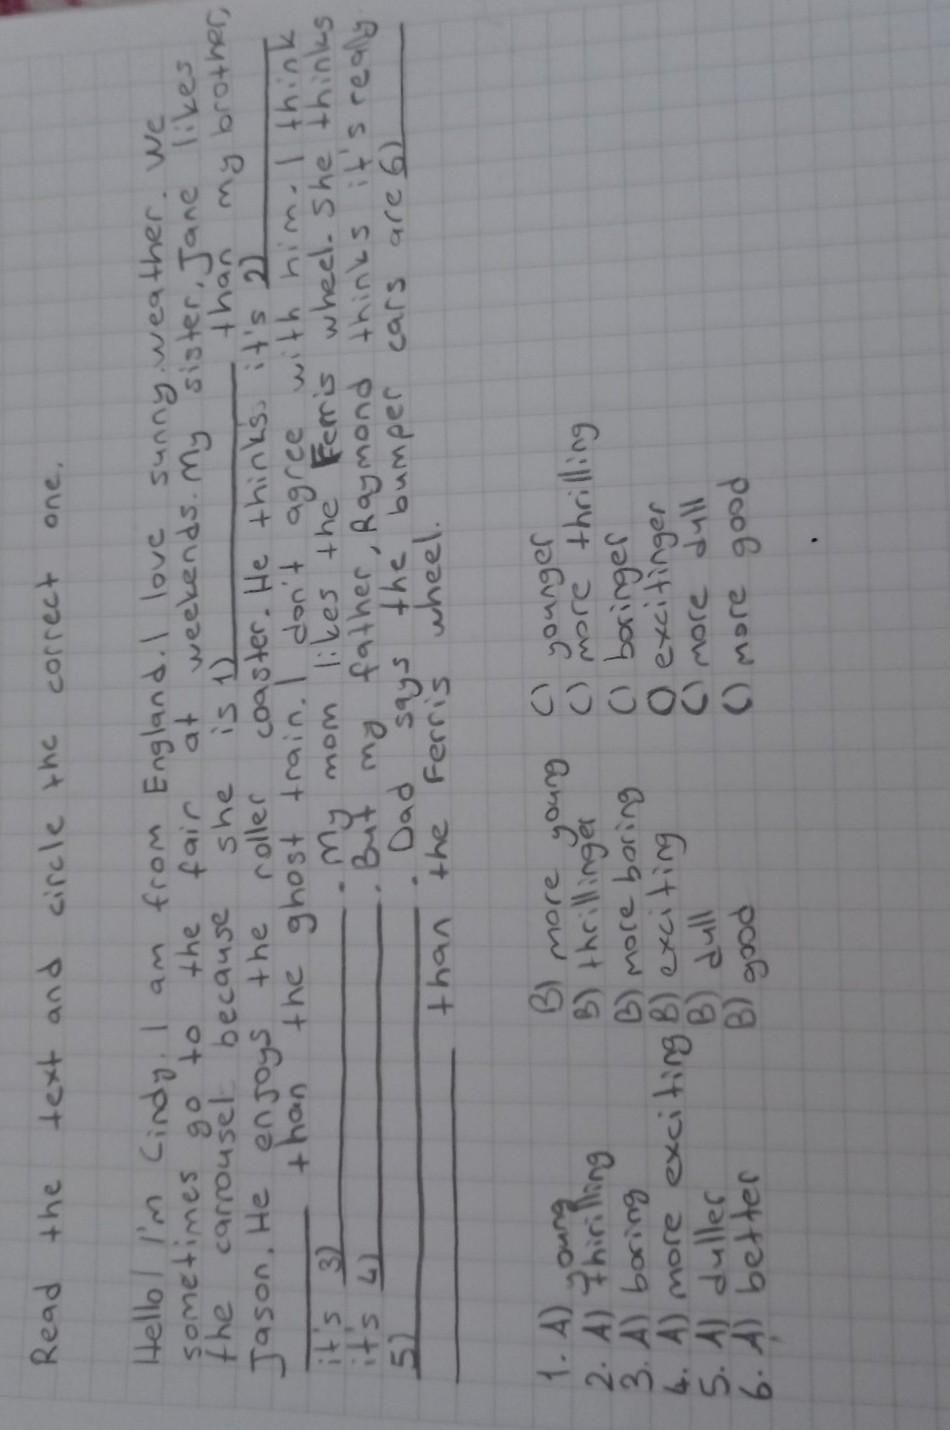 Read the text and circle the correct one.
Hello! I'm Cindy. I am from England. I love sunny weather. We
sometimes go to the fair at weekends. My sister, Jane likes
the carrousel because she is 1)__________ than my brother,
Jason. He enjoys the roller coaster. He thinks it's 2)__________
__________ than the ghost train. I don't agree with him. I think
it's 3)__________. My mom likes the Ferris wheel. She thinks
it's 4)__________. But my father, Raymond thinks it's realy
5)__________. Dad says the bumper cars are 6)__________
__________ than the Ferris wheel.
1. A) young B) more young C) younger
2. A) Thirilling B) thrillinger C) more thrilling
3. A) boring B) more boring C) boringer
4. A) more exciting B) exciting C) excitinger
5. A) duller B) dull C) more dull
6. A) better B) good C) more good